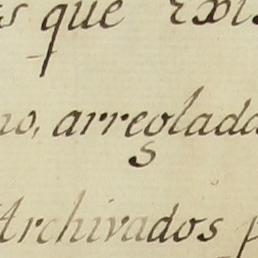 as que Exis
no, arreglada
Archivados p